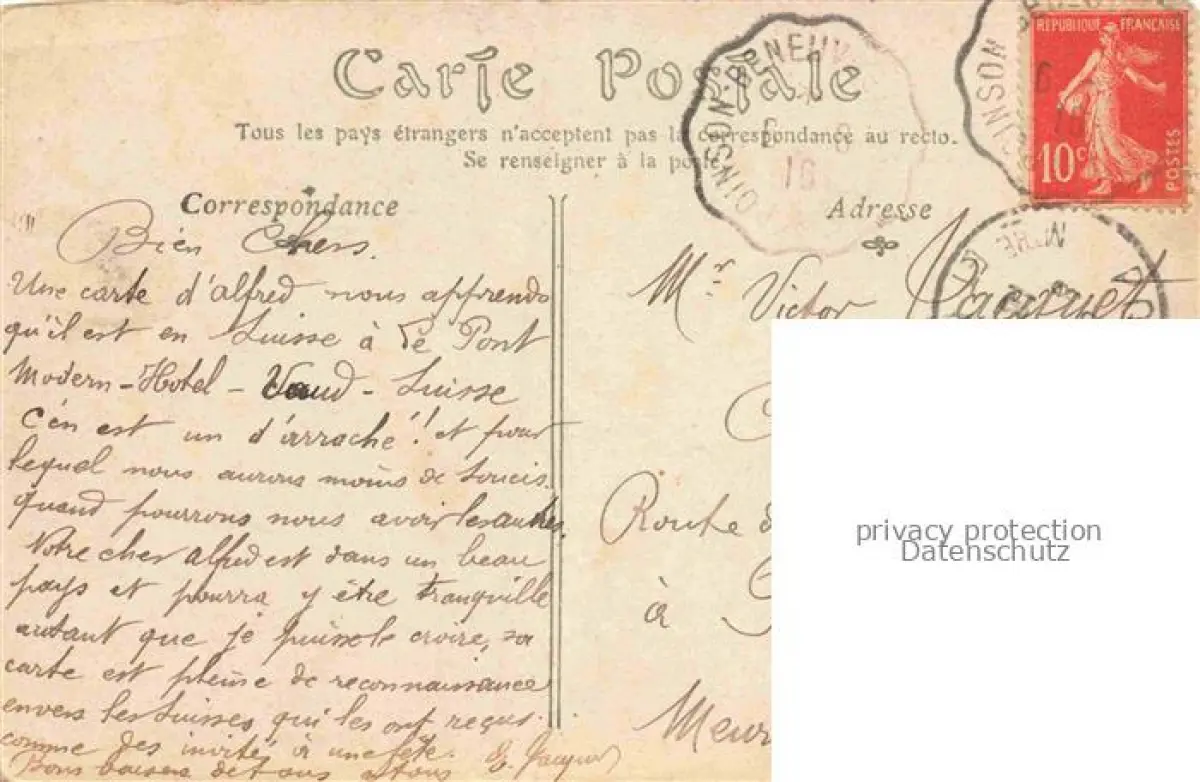 Carte Postale
Tous les pays étrangers n'acceptent pas la correspondance au recto.
Se renseigner à la poste
Correspondance
Bien Chers.
Une carte d'alfred nous apprends
qu'il est en Suisse à Le Pont
Modern-Hotel - Vaud - Suisse
c'en est un d'arraché!! et pour
lequel nous aurons moins de soucis.
quand pourrons nous avoir les autres.
Notre cher alfred est dans un beau
pays et pourra y être tranquille
autant que je puisse le croire, sa
carte est pleine de reconnaissance
envers les Suisses qui les ont reçus.
comme des invité à une fête.
Bons baisers de tous a tous
RÉPUBLIQUE FRANÇAISE
10c
POSTES
OINSON
NEUV
6
16
Adresse
Mr Victor
Route d
à
Meur
privacy protection
Datenschutz